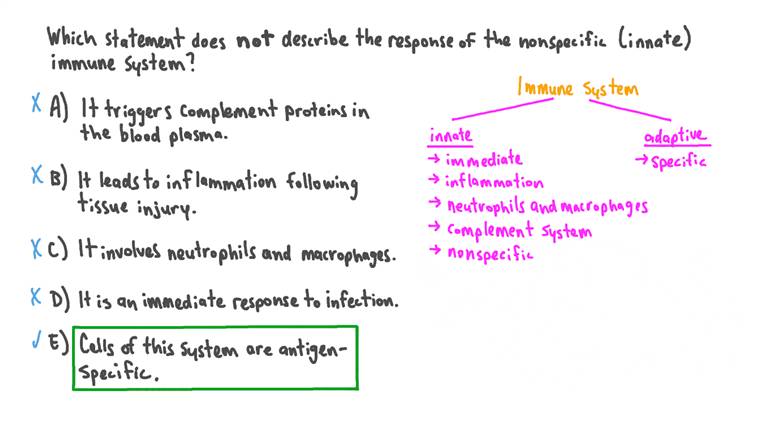 Which statement does not describe the response of the nonspecific (innate)
immune system?
x A) It triggers complement proteins in
the blood plasma.
x B) It leads to inflammation following
tissue injury.
x C) It involves neutrophils and macrophages.
x D) It is an immediate response to infection.
✓ E) Cells of this system are antigen-
specific.
Immune System
innate
→ immediate
→ inflammation
→ neutrophils and macrophages
→ complement system
→ nonspecific
adaptive
→ specific